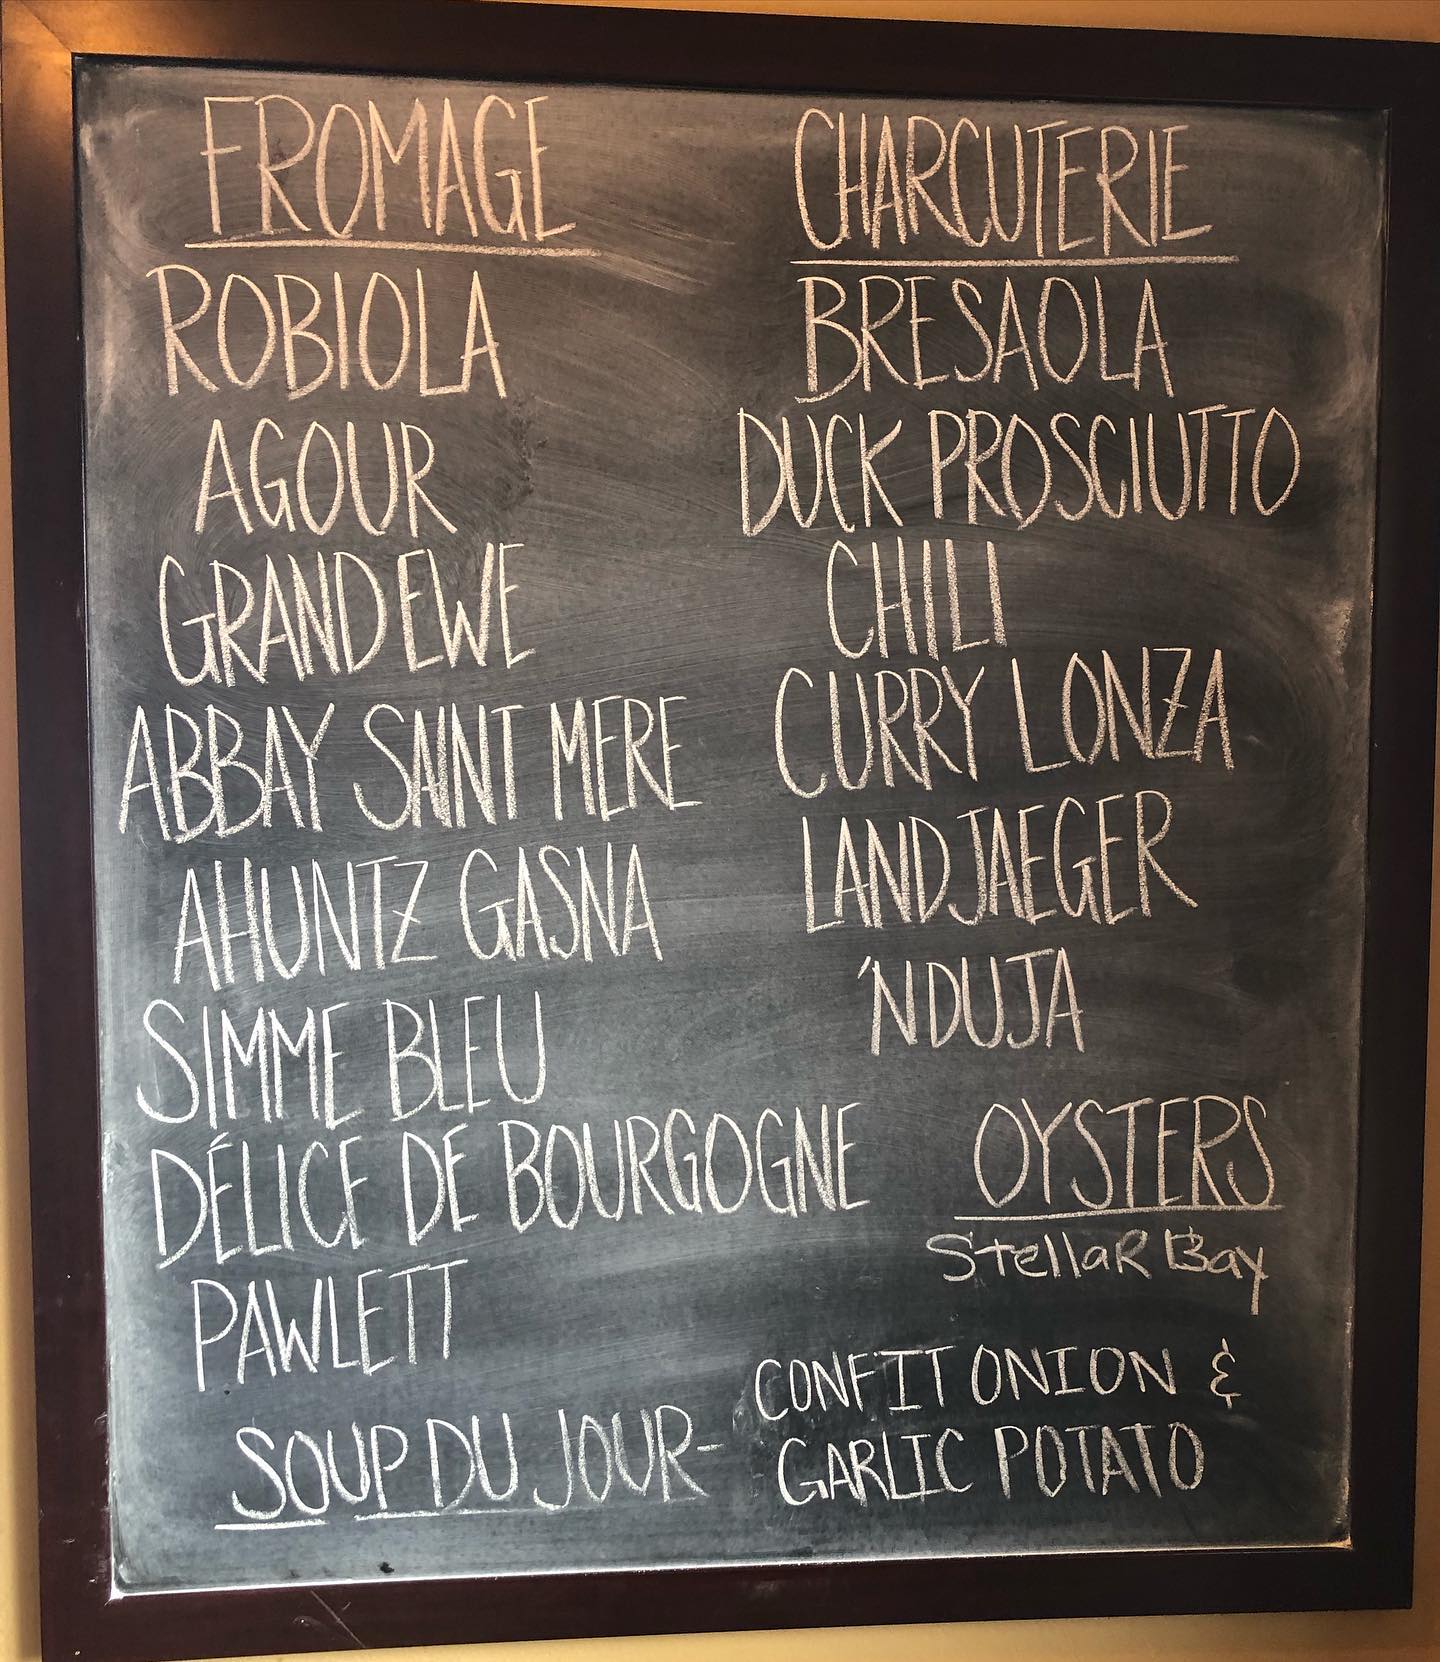 FROMAGE
ROBIOLA
AGOUR
GRAND EWE
ABBAY SAINT MERE
AHUNTZ GASNA
SIMME BLEU
DÉLICE DE BOURGOGNE
PAWLETT
CHARCUTERIE
BRESAOLA
DUCK PROSCIUTTO
CHILI
CURRY LONZA
LANDJAEGER
'NDUJA
OYSTERS
Stellar Bay
SOUP DU JOUR-
CONFIT ONION &
GARLIC POTATO